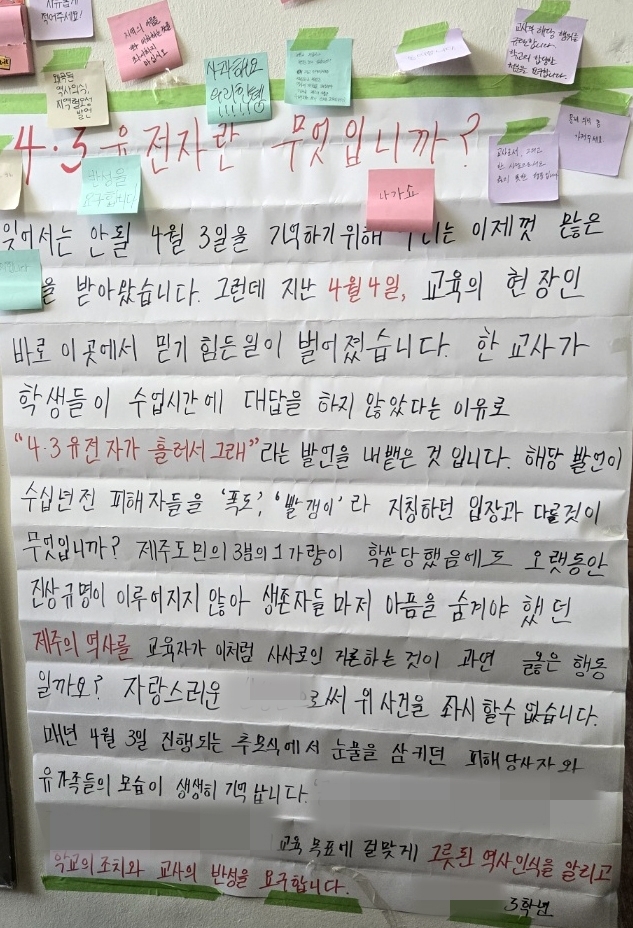 사과해요
우리한테
!!!!!
왜곡된
역사의식,
지역혐오성
발언
4·3 유전자란 무엇입니까?
반성을
요구합니다
나가쇼
잊어서는 안될 4월 3일을 기억하기위해 는 이제껏 많은
을 받아왔습니다. 그런데 지난 4월 4일, 교육의 현장인
바로 이곳에서 믿기 힘든일이 벌어졌습니다. 한 교사가
학생들이 수업시간에 대답을 하지 않았다는 이유로
"4·3 유전자가 흘러서 그래"라는 발언을 내뱉은 것 입니다. 해당 발언이
수십년전 피해자들을 '폭도', '빨갱이'라 지칭하던 입장과 다를것이
무엇입니까? 제주도민의 3분의 1 가량이 학살당했음에도 오랫동안
진상규명이 이루어지지 않아 생존자들마저 아픔을 숨겨야 했던
제주의 역사를 교육자가 이처럼 사사로이 거론하는 것이 과연 옳은 행동
일까요? 자랑스러운 로써 위 사건을 좌시 할수 없습니다.
매년 4월 3일 진행되는 추모식에서 눈물을 삼키던 피해당사자와
유가족들의 모습이 생생히 기억 납니다.
교육 목표에 걸맞게 그릇된 역사인식을 알리고
학교의 조치와 교사의 반성을 요구합니다.
3학년